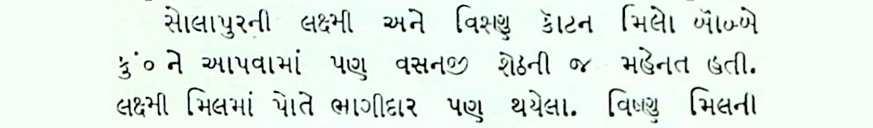 સોલાપુરની લક્ષ્મી અને વિશ્ણુ કૉટન મિલો બૉમ્બે
કું૦ ને આપવામાં પણ વસનજી શેઠની જ મહેનત હતી.
લક્ષ્મી મિલમાં પોતે ભાગીદાર પણ થયેલા. વિષ્ણુ મિલની